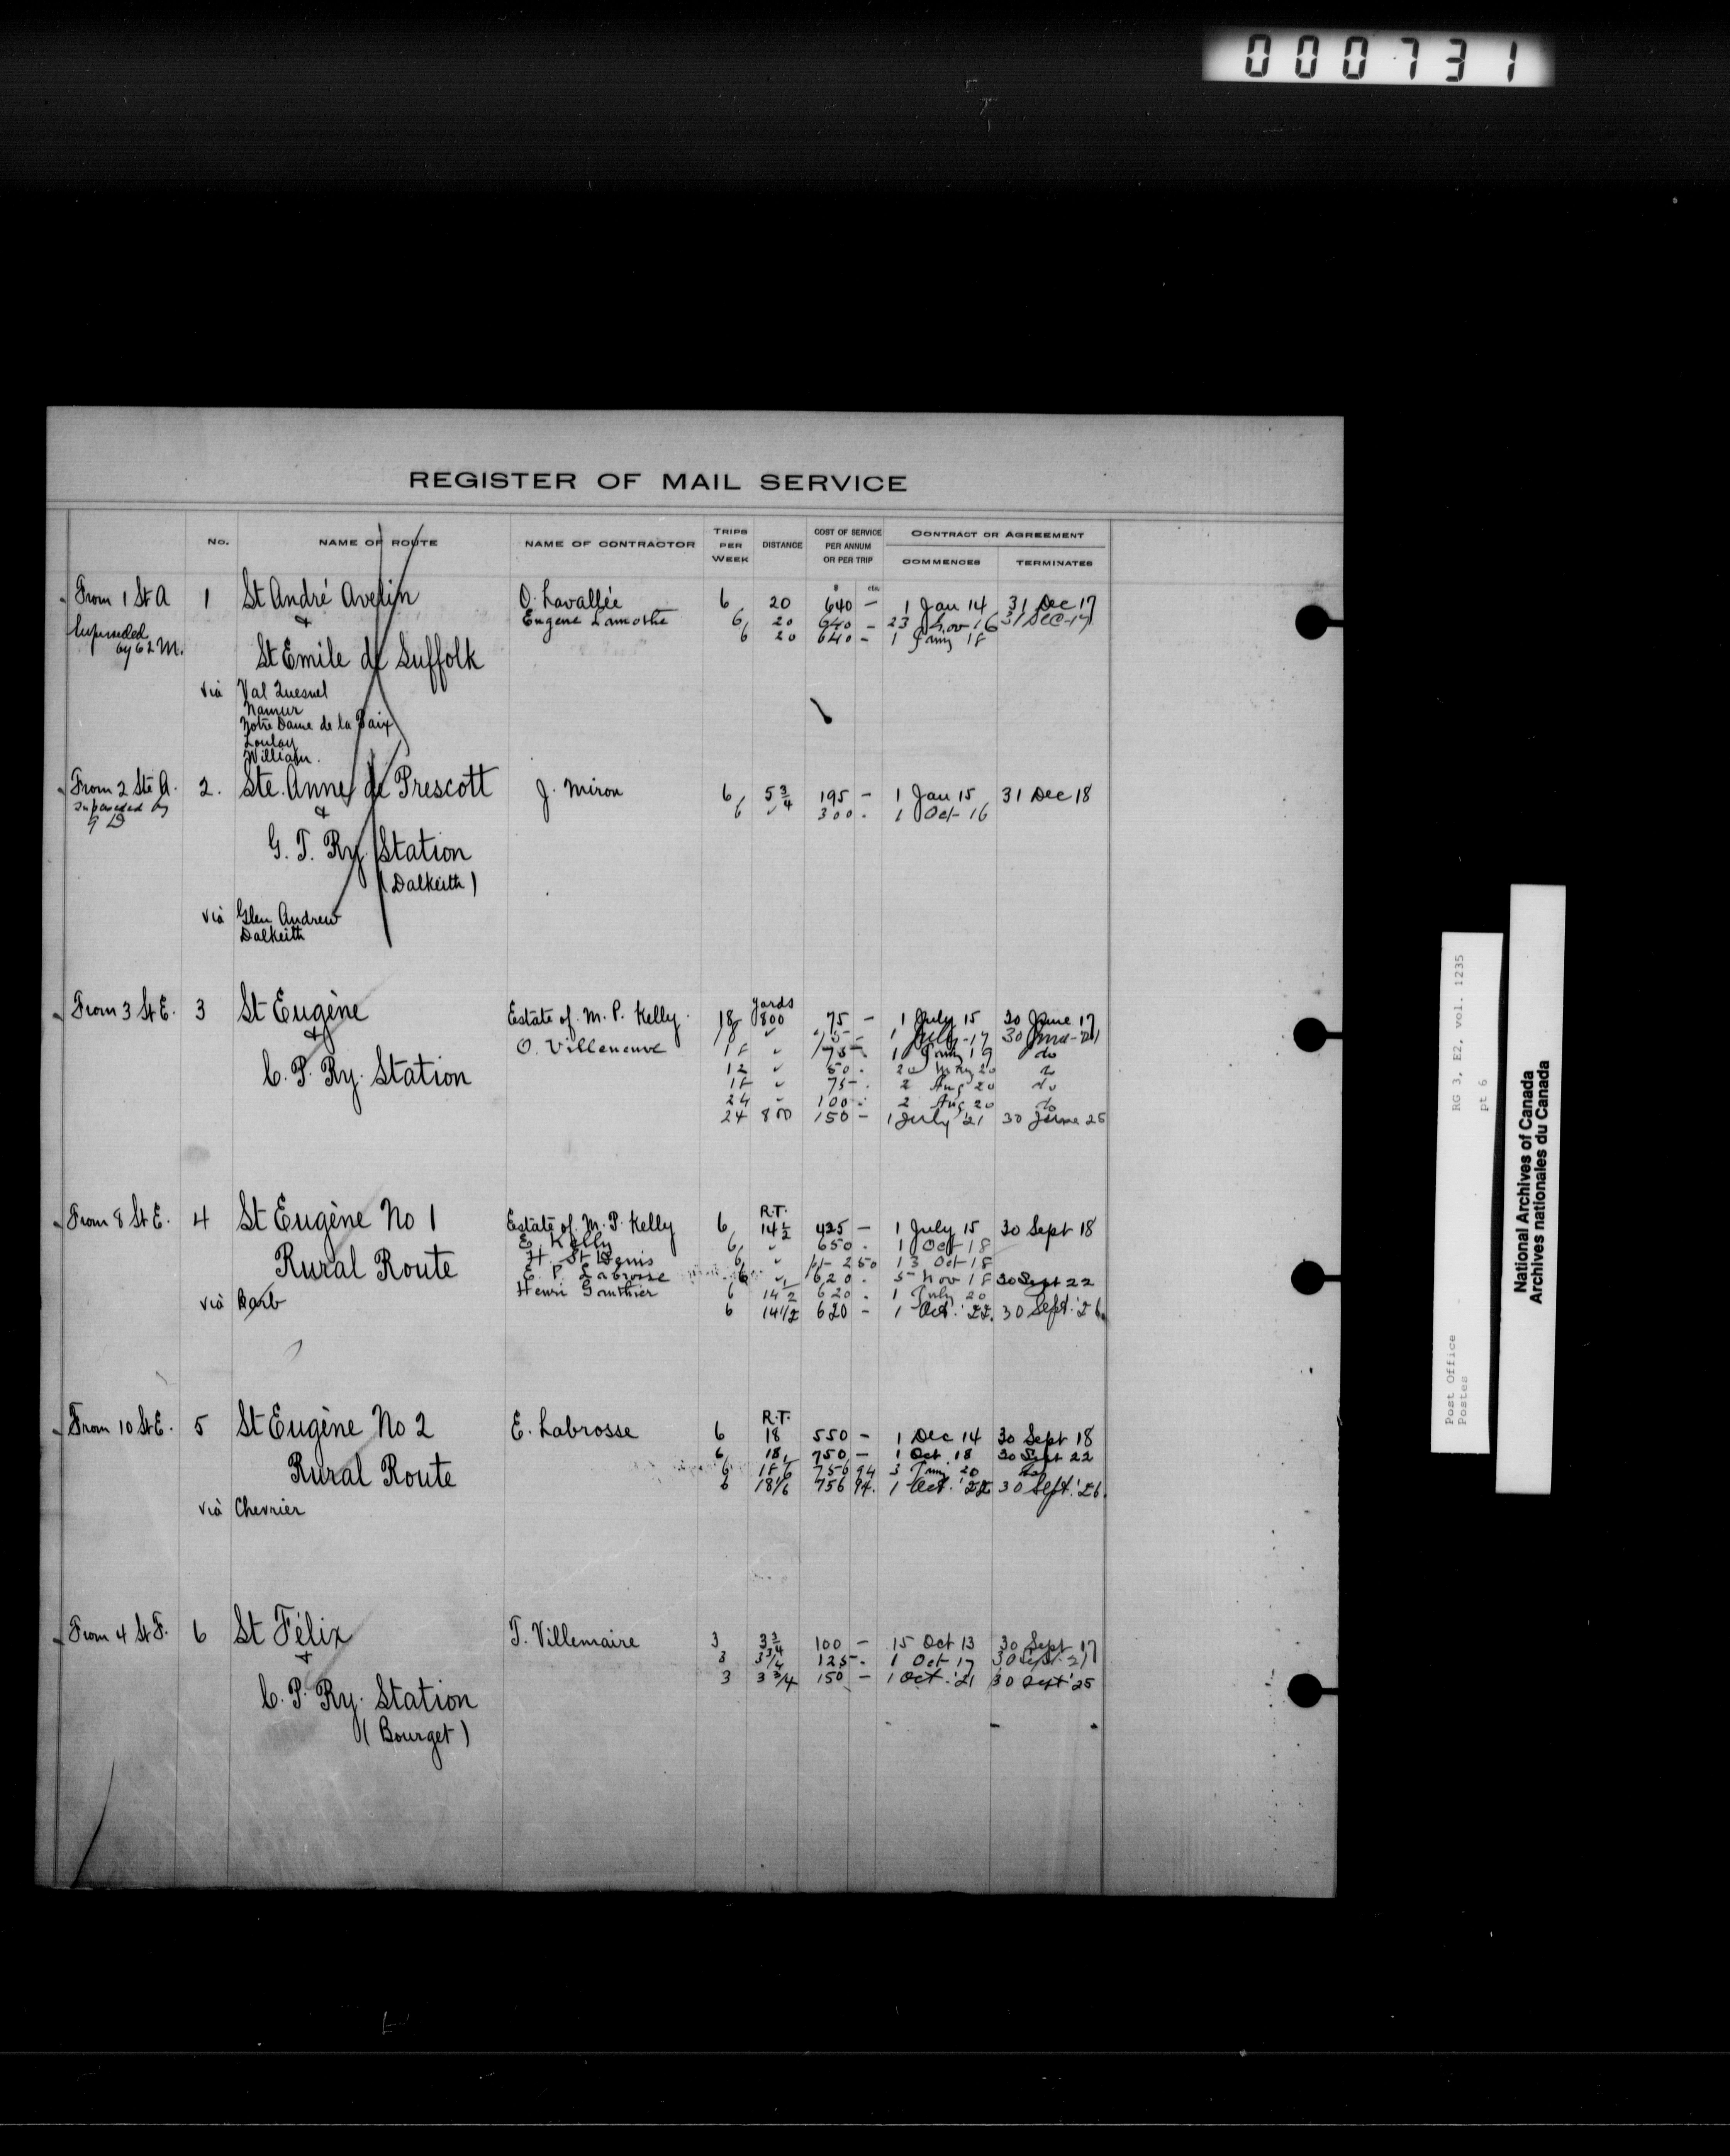 000731
REGISTER OF MAIL SERVICE
No. NAME OF ROUTE NAME OF CONTRACTOR TRIPS PER WEEK DISTANCE COST OF SERVICE PER ANNUM OR PER TRIP CONTRACT OR AGREEMENT
COMMENCES TERMINATES
$ cts
From 1 St A 1 St André Avelin O. Lavallée 6 20 640 — 1 Jan 14 31 Dec 17
& Eugene Lamothe 6 20 640 — 23 Nov 16 31 Dec 17
Superseded by 62 M. 6 20 640 — 1 Jany 18
St Emile de Suffolk
via Val Quesnel
Namur
Notre Dame de la Paix
William.
From 2 Ste A. 2. Ste. Anne de Prescott J. Miron 6 5 3/4 195 — 1 Jan 15 31 Dec 18
superseded by 9 D & 6 " 300 . 1 Oct 16
G. T. Ry. Station
(Dalkeith)
via Glen Andrew
Dalkeith
yards
From 3 St E. 3 St Eugène Estate of M. P. Kelly. 18 800 75 — 1 July 15 30 June 17
& 18 " 75 — 1 July 17 30 June 21
O. Villeneuve 18 " 75 . 1 Jany 19 do
C. P. Ry. Station 12 " 50 . 20 May 20 do
18 " 75 . 2 Aug 20 do
24 " 100 . 2 Aug 20 do
24 800 150 — 1 July '21 30 June 25
R.T.
From 8 St E. 4 St Eugène No 1 Estate of M. P. Kelly 6 14 1/2 425 — 1 July 15 30 Sept 18
E. Kelly 6 " 650 . 1 Oct 18
Rural Route H. St Denis 6 " 250 13 Oct 18
E. P. Labrosse 6 " 620 . 5 Nov 18 30 Sept 22
via Barb Henri Gauthier 6 14 1/2 620 . 1 July 20
6 14 1/2 620 — 1 Oct. '22. 30 Sept. '26.
R.T.
From 10 St E. 5 St Eugène No 2 E. Labrosse 6 18 550 — 1 Dec 14 30 Sept 18
6 18 750 — 1 Oct 18 30 Sept 22
Rural Route 6 18 1/6 756 94 3 Jany 20 do
6 18 1/6 756 94. 1 Oct. '22 30 Sept. '26.
via Chevrier
From 4 St F. 6 St Félix T. Villemaire 3 3 3/4 100 — 15 Oct 13 30 Sept 17
& 3 3 3/4 125 . 1 Oct 17 30 Sept 21
3 3 3/4 150 — 1 Oct. '21 30 Sept '25
C. P. Ry. Station
(Bourget)
RG 3, E2, vol. 1235
pt 6
Post Office
Postes
National Archives of Canada
Archives nationales du Canada